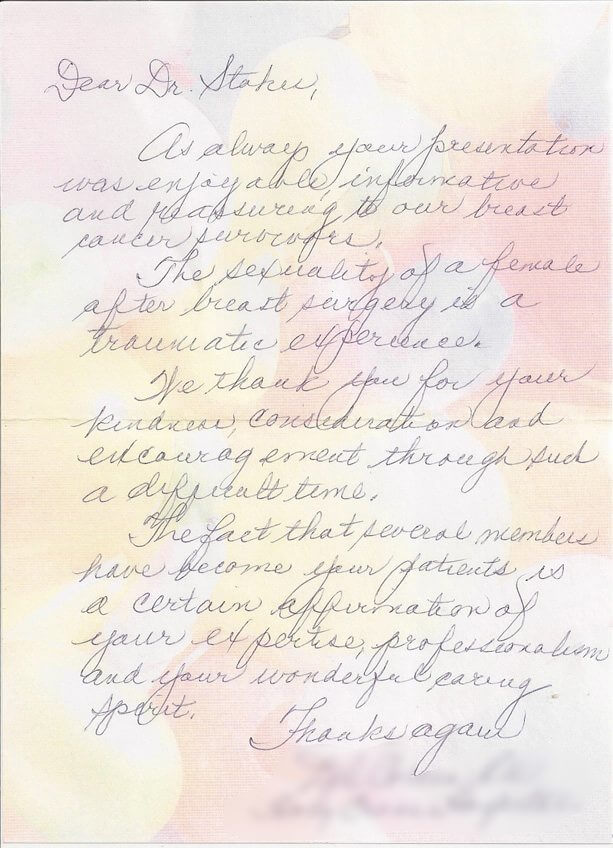 Dear Dr. Stokes,
As always your presentation
was enjoyable, informative
and reassuring to our breast
cancer survivors.
The sexuality of a female
after breast surgery is a
traumatic experience.
We thank you for your
kindness, consideration and
encouragement through such
a difficult time.
The fact that several members
have become your patients is
a certain affirmation of
your expertise, professionalism
and your wonderful caring
spirit.
Thanks again